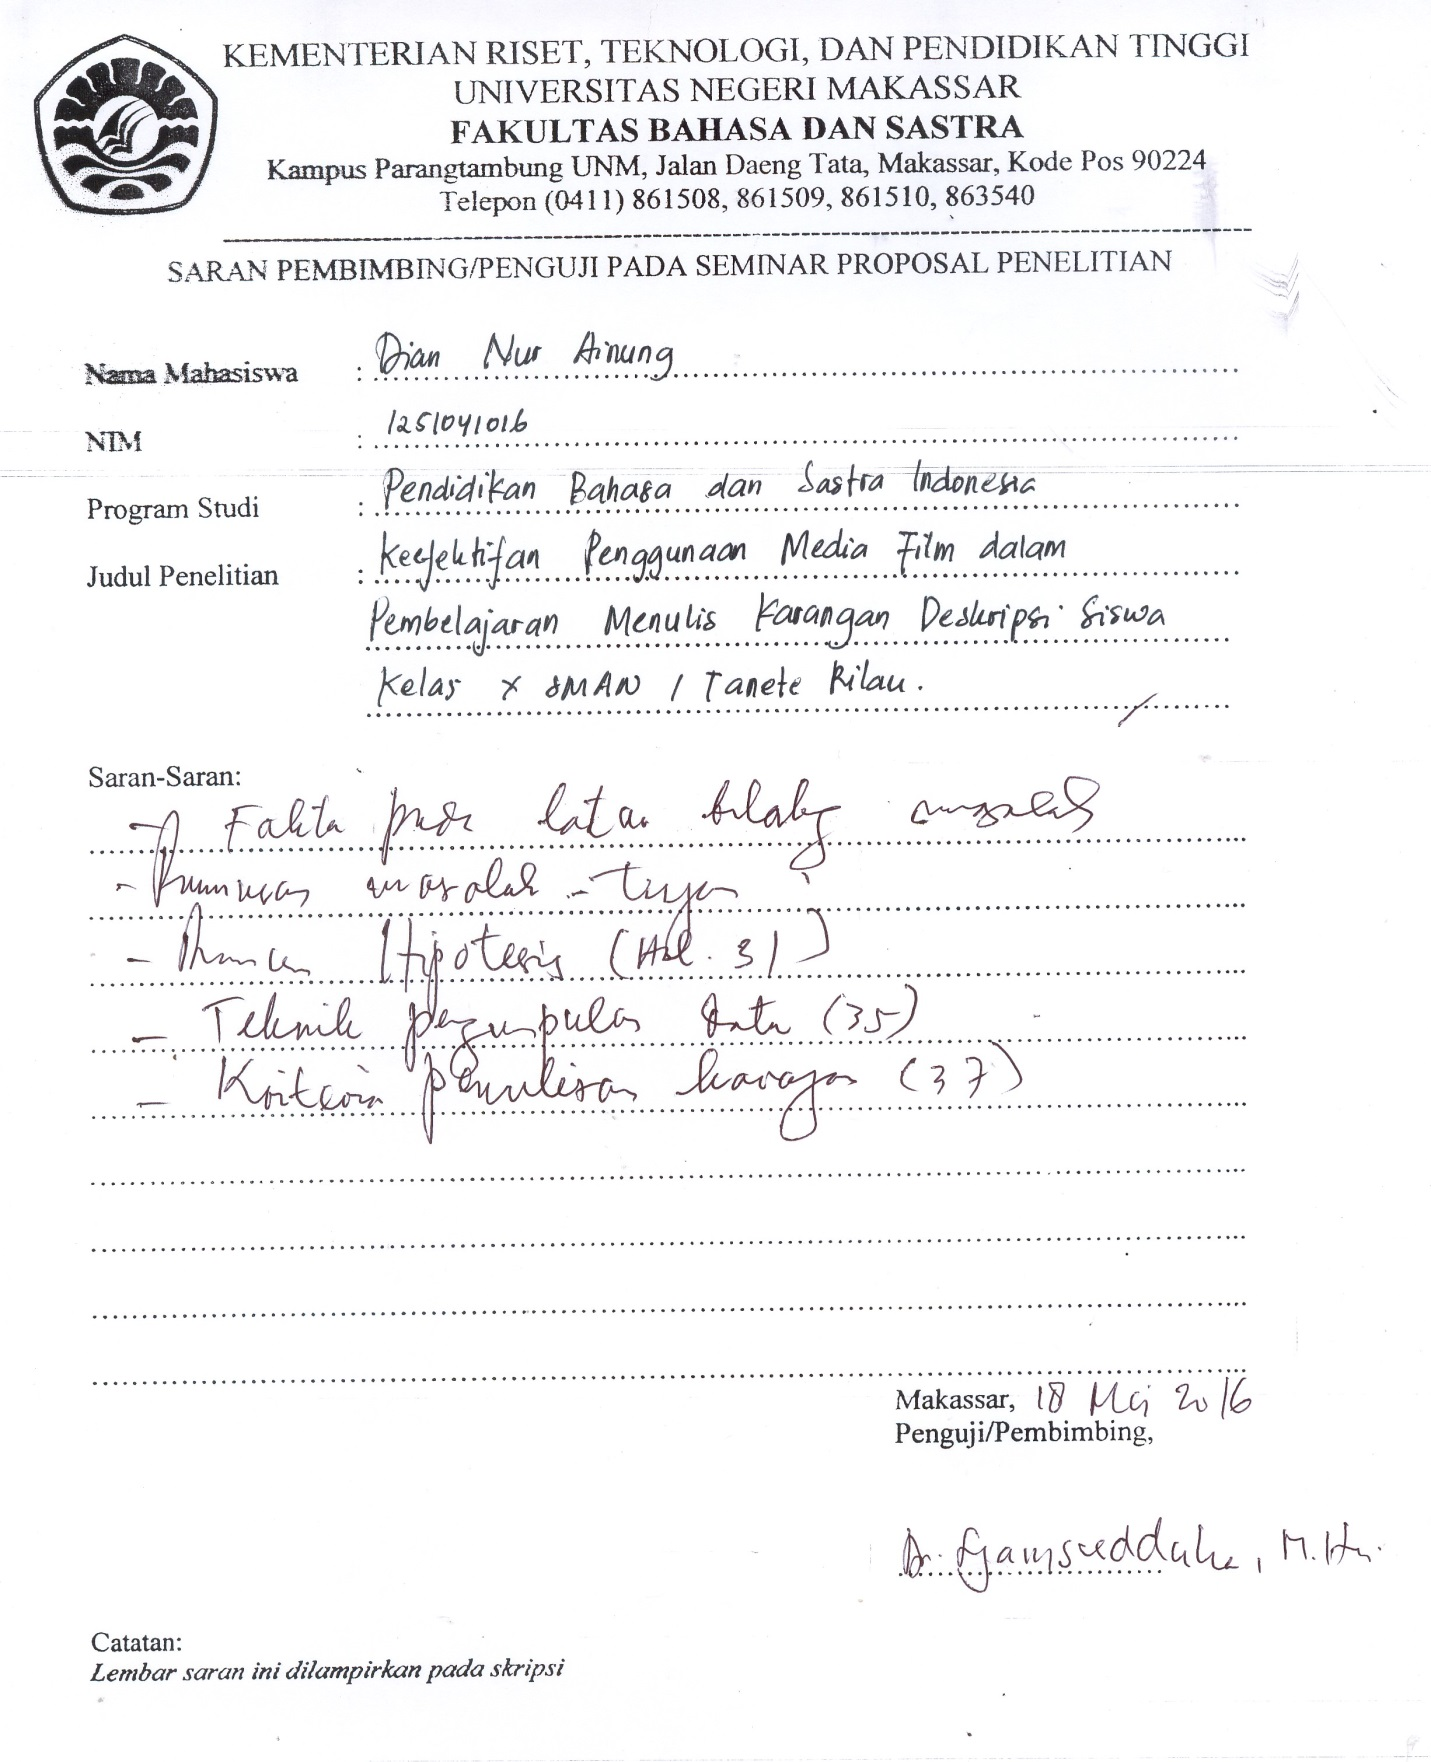 KEMENTERIAN RISET, TEKNOLOGI, DAN PENDIDIKAN TINGGI
UNIVERSITAS NEGERI MAKASSAR
FAKULTAS BAHASA DAN SASTRA
Kampus Parangtambung UNM, Jalan Daeng Tata, Makassar, Kode Pos 90224
Telepon (0411) 861508, 861509, 861510, 863540
SARAN PEMBIMBING/PENGUJI PADA SEMINAR PROPOSAL PENELITIAN
Nama Mahasiswa : Dian Nur Ainung
NIM : 1251041016
Program Studi : Pendidikan Bahasa dan Sastra Indonesia
Judul Penelitian : Keefektifan Penggunaan Media Film dalam
Pembelajaran Menulis Karangan Deskripsi Siswa
Kelas X SMAN 1 Tanete Rilau.
Saran-Saran:
- Fakta pada latar belakang masalah
- Rumusan masalah - tujuan
- Hipotesis (Hal. 31)
- Teknik pengumpulan data (35)
- Kriteria penulisan karangan (37)
Makassar, 18 Mei 2016
Penguji/Pembimbing,
Dr. M.Hum.
Catatan:
Lembar saran ini dilampirkan pada skripsi